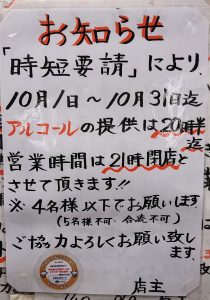 お知らせ
「時短要請」により
10月1日～10月31日迄
アルコールの提供は20時半迄
営業時間は21時閉店と
させて頂きます!!
※4名様以下でお願いします
(5名様不可、合流不可)
ご協力よろしくお願い致し
ます。
店主